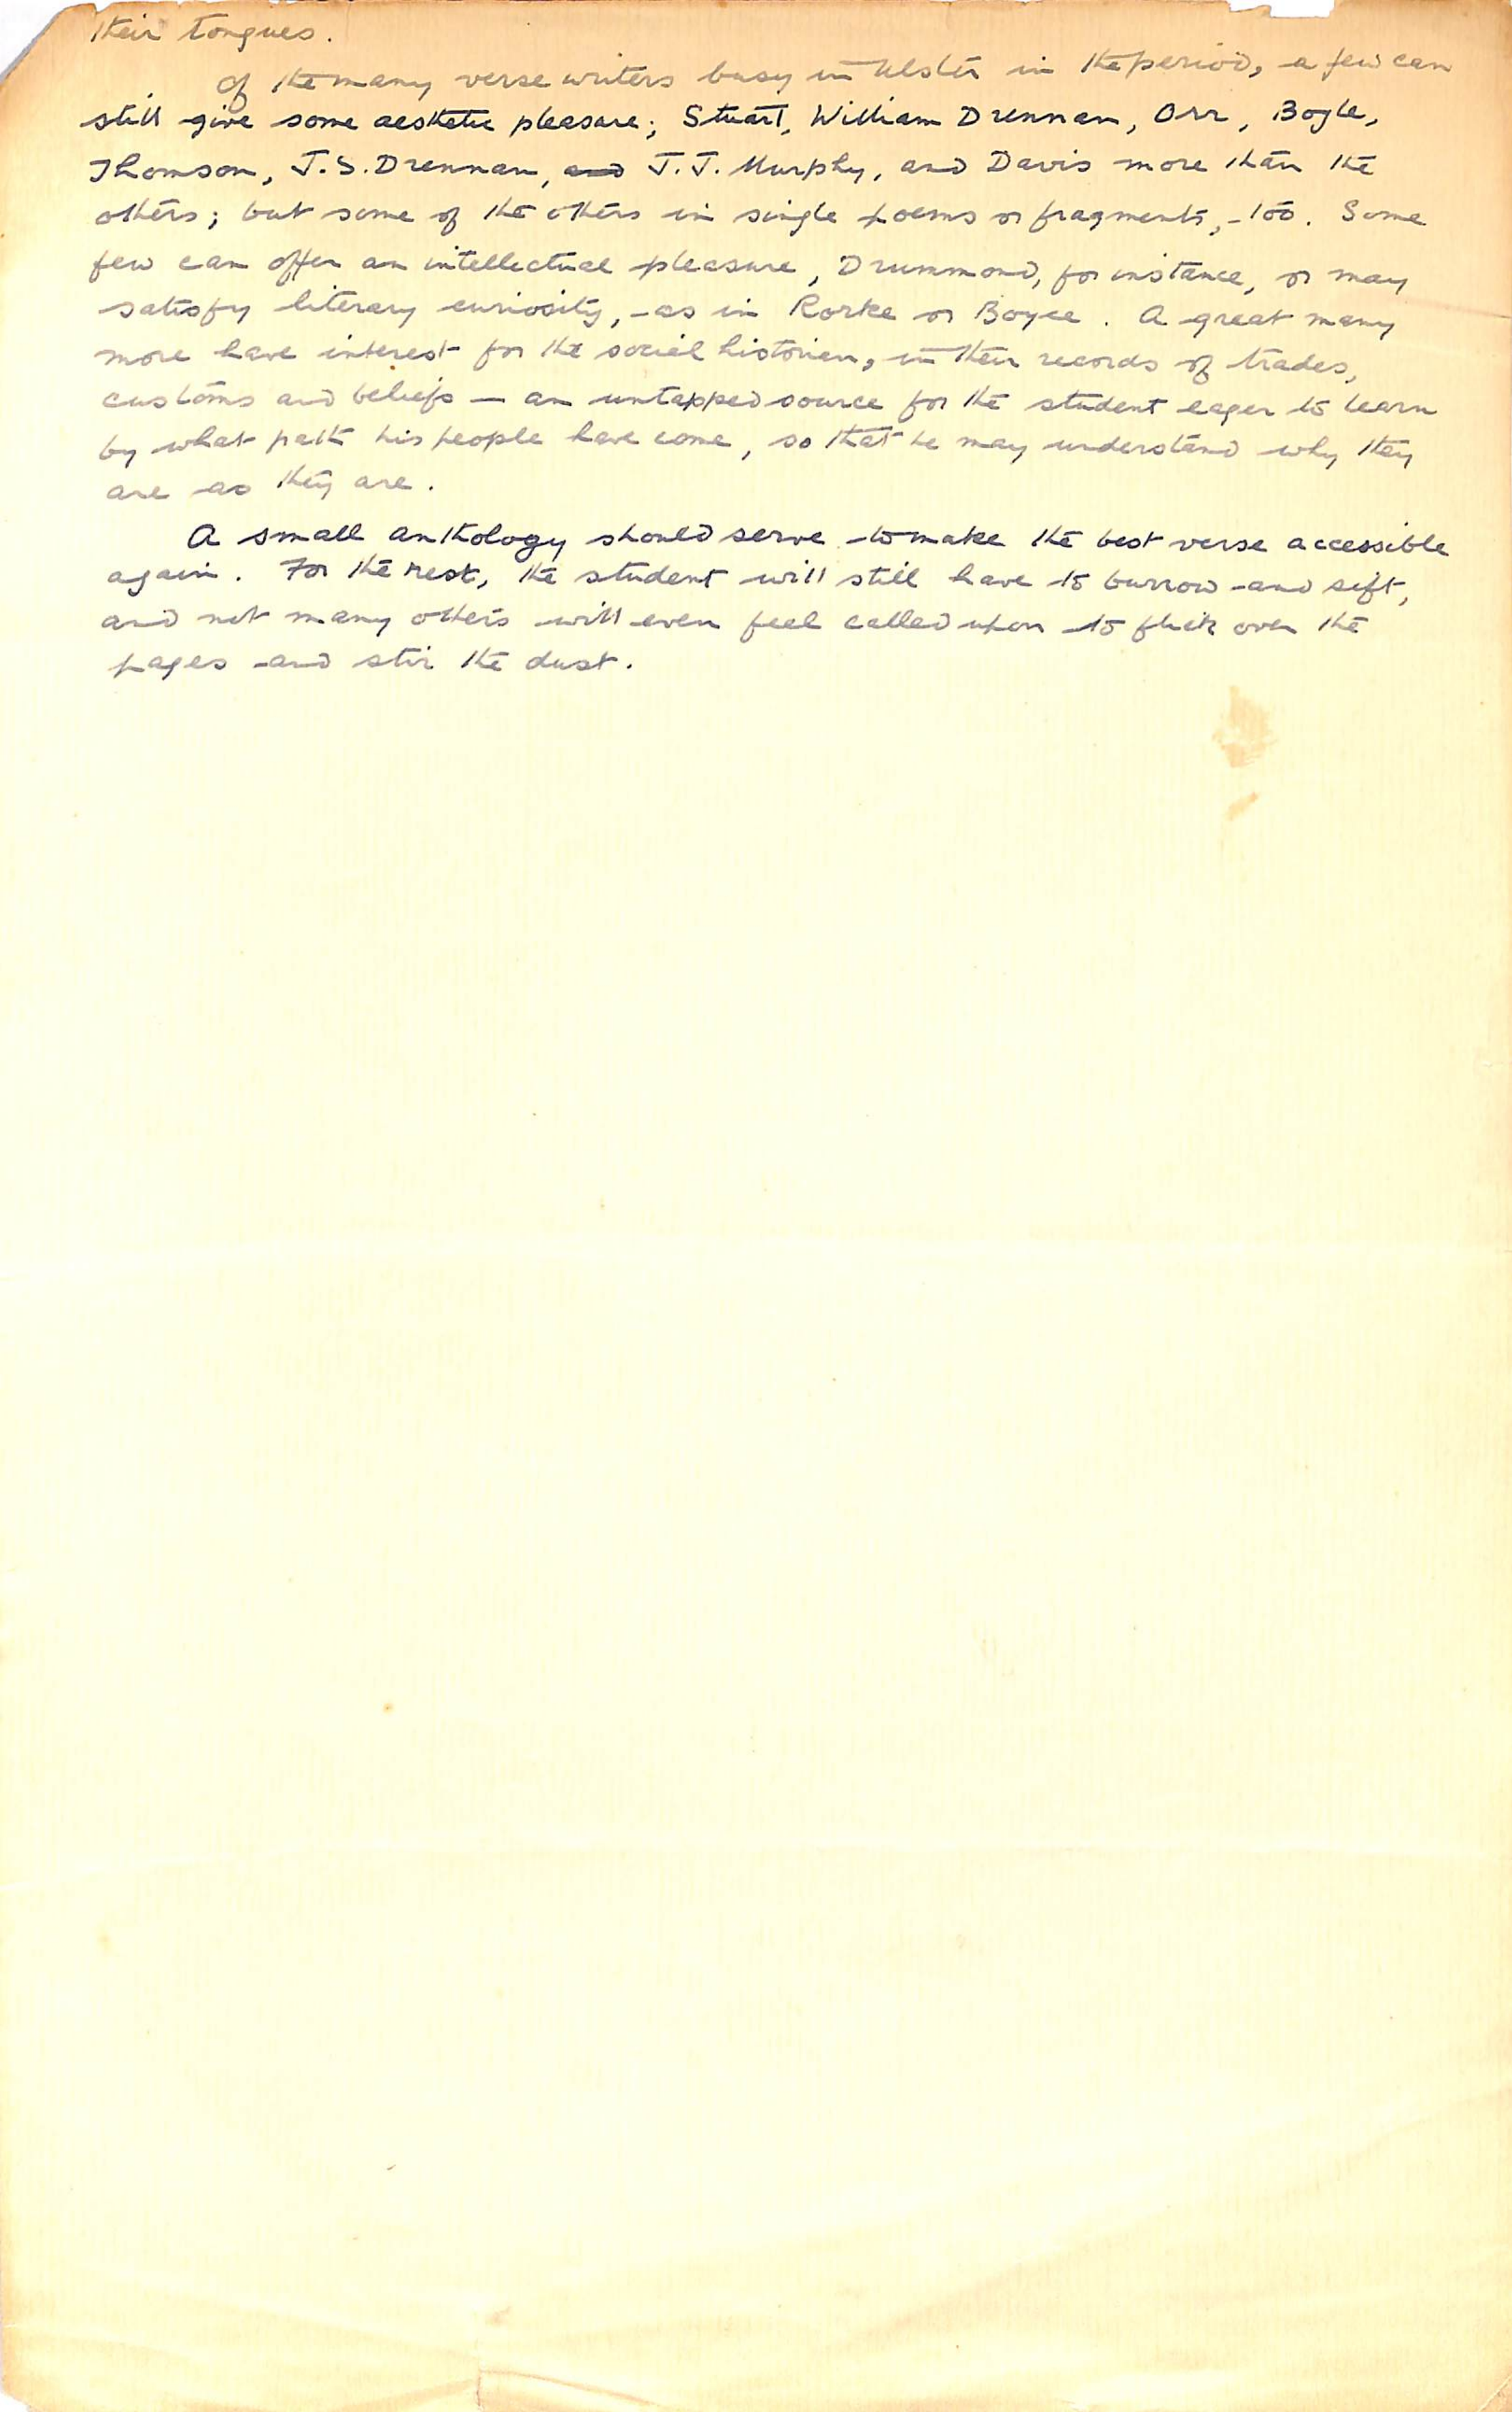 their tongues.
Of the many verse writers busy in Ulster in the period, a few can
still give some aesthetic pleasure; Stuart, William Drennan, Orr, Boyle,
Thomson, J.S. Drennan, and J.J. Murphy, and Davis more than the
others; but some of the others in single poems or fragments, - too. Some
few can offer an intellectual pleasure, Drummond, for instance, or may
satisfy literary curiosity, - as in Rorke or Boyce. A great many
more have interest for the social historian, in their records of trades,
customs and beliefs — an untapped source for the student eager to learn
by what path his people have come, so that he may understand why they
are as they are.
A small anthology should serve to make the best verse accessible
again. For the rest, the student will still have to burrow and sift,
and not many others will even feel called upon to flick over the
pages and stir the dust.